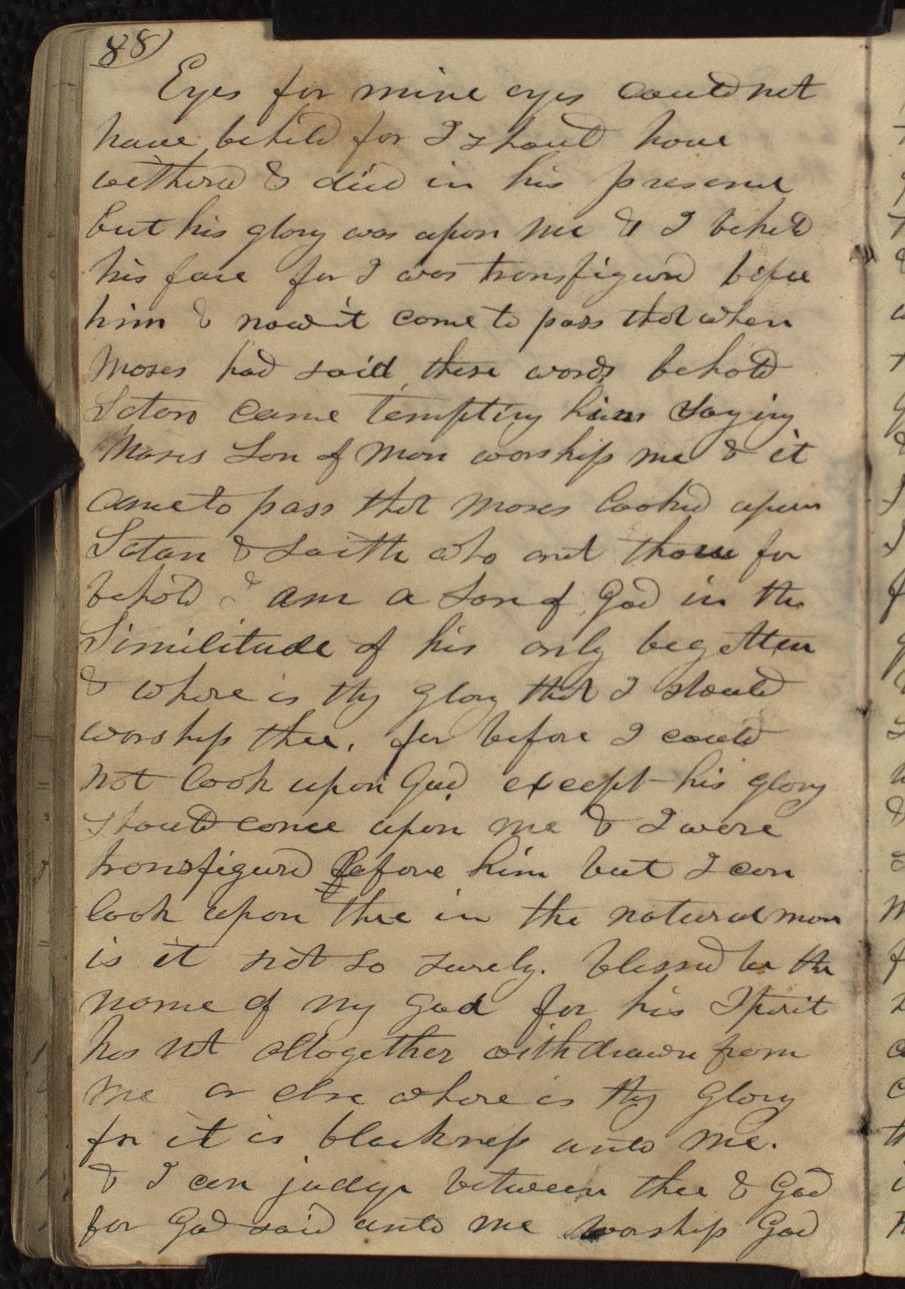 88)
Eyes for mine eyes could not
have beheld for I should have
withered & died in his presence
but his glory was upon me & I beheld
his face for I was transfigured before
him & now it come to pass that when
Moses had said these words behold
Satan came tempting him Saying
Moses Son of Man worship me & it
came to pass that Moses looked upon
Satan & saith who art thou for
behold I am a Son of God in the
Similitude of his only begotten
& where is thy glory that I should
worship thee. for before I could
not look upon God except his glory
should come upon me & I were
transfigured before him but I can
look upon thee in the natural man
is it not so surely. blessed be the
name of my God for his Spirit
has not altogether withdrawn from
me or else where is thy Glory
for it is blackness unto me.
& I can judge between thee & God
for God said unto me worship God